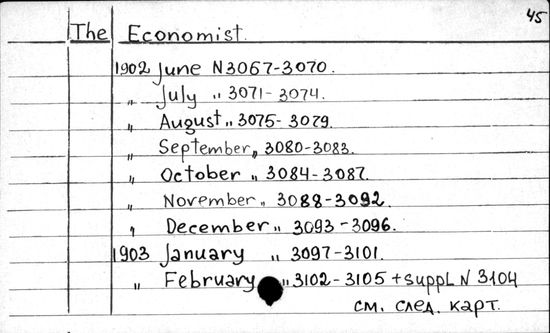 45
The Economist.
1902 June N3067-3070.
„ July „ 3071-3074.
„ August „ 3075-3079.
„ September „ 3080-3083.
„ October „ 3084-3087.
„ November „ 3088-3092.
„ December „ 3093-3096.
1903 January „ 3097-3101.
„ February „ 3102-3105 + Suppl. N 3104
см. след. карт.